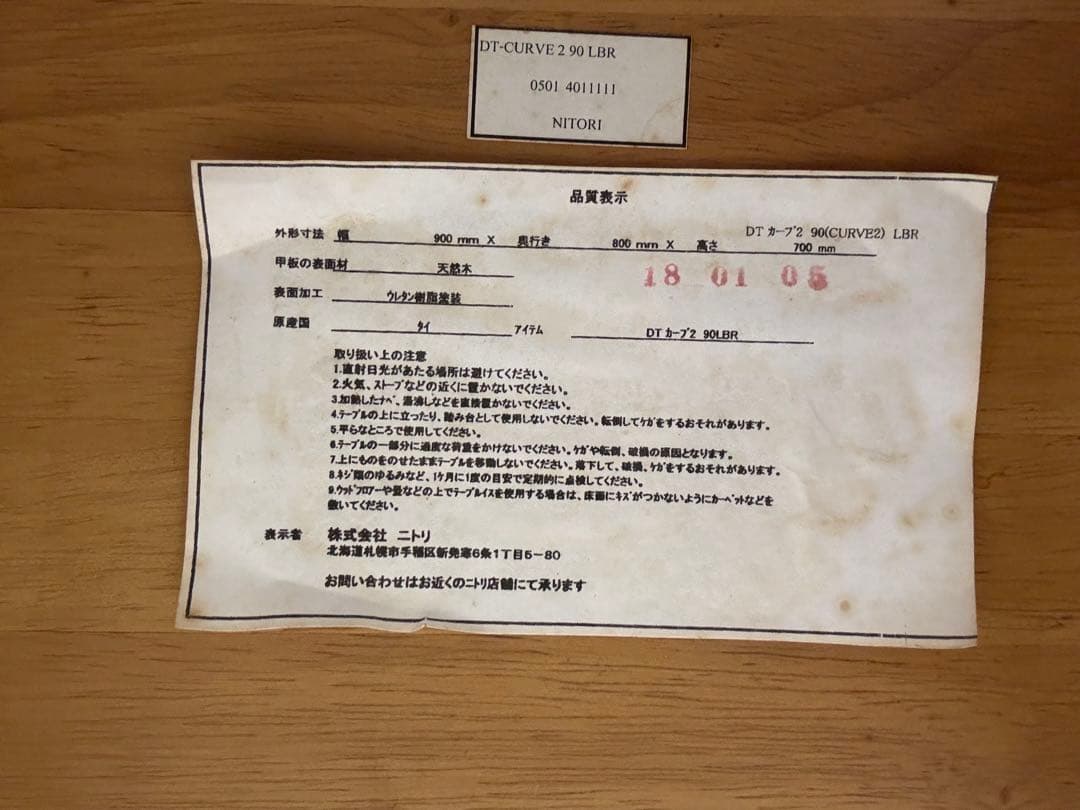 DT-CURVE 2 90 LBR
0501 4011111
NITORI
品質表示
DT カーブ2 90(CURVE2) LBR
外形寸法 幅 900 mm X 奥行き 800 mm X 高さ 700 mm
甲板の表面材 天然木
18 01 05
表面加工 ウレタン樹脂塗装
原産国 タイ アイテム DT カーブ2 90LBR
取り扱い上の注意
1.直射日光があたる場所は避けてください。
2.火気、ストーブなどの近くに置かないでください。
3.加熱したナベ、湯沸しなどを直接置かないでください。
4.テーブルの上に立ったり、踏み台として使用しないでください。転倒してケガをするおそれがあります。
5.平らなところで使用してください。
6.テーブルの一部分に過度な荷重をかけないでください。ケガや転倒、破損の原因となります。
7.上にものをのせたままテーブルを移動しないでください。落下して、破損、ケガをするおそれがあります。
8.ネジ類のゆるみなど、1ケ月に1度の目安で定期的に点検してください。
9.ウッドフロアーや畳などの上でテーブルイスを使用する場合は、床面にキズがつかないようにカーペットなどを
敷いてください。
表示者 株式会社 ニトリ
北海道札幌市手稲区新発寒6条1丁目5-80
お問い合わせはお近くのニトリ店舗にて承ります